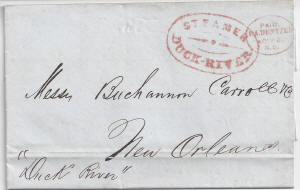 STEAMER
DUCK-RIVER
PAID
Messrs Buchannon Carroll & Co
New Orleans
"Duck River"